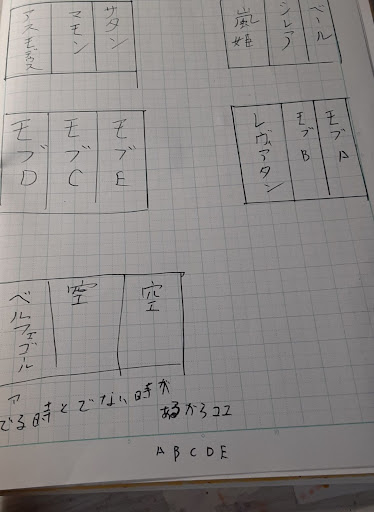 ベール
シレア
嵐姫
サタン
マモン
アスモデウス
モブA
モブB
レヴァアタン
モブE
モブC
モブD
空
空
ベルフェゴール
ア
でる時とでない時が
あるからココ
A B C D E